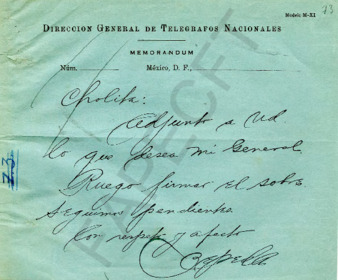 Modelo M-XI
73
DIRECCION GENERAL DE TELEGRAFOS NACIONALES
MEMORANDUM
Núm. México, D. F.,
Cholita:
Adjunto a Ud
lo que desea mi General.
Ruego firmar el sobre
Seguimos pendientes.
Con respeto y afecto
Zapella